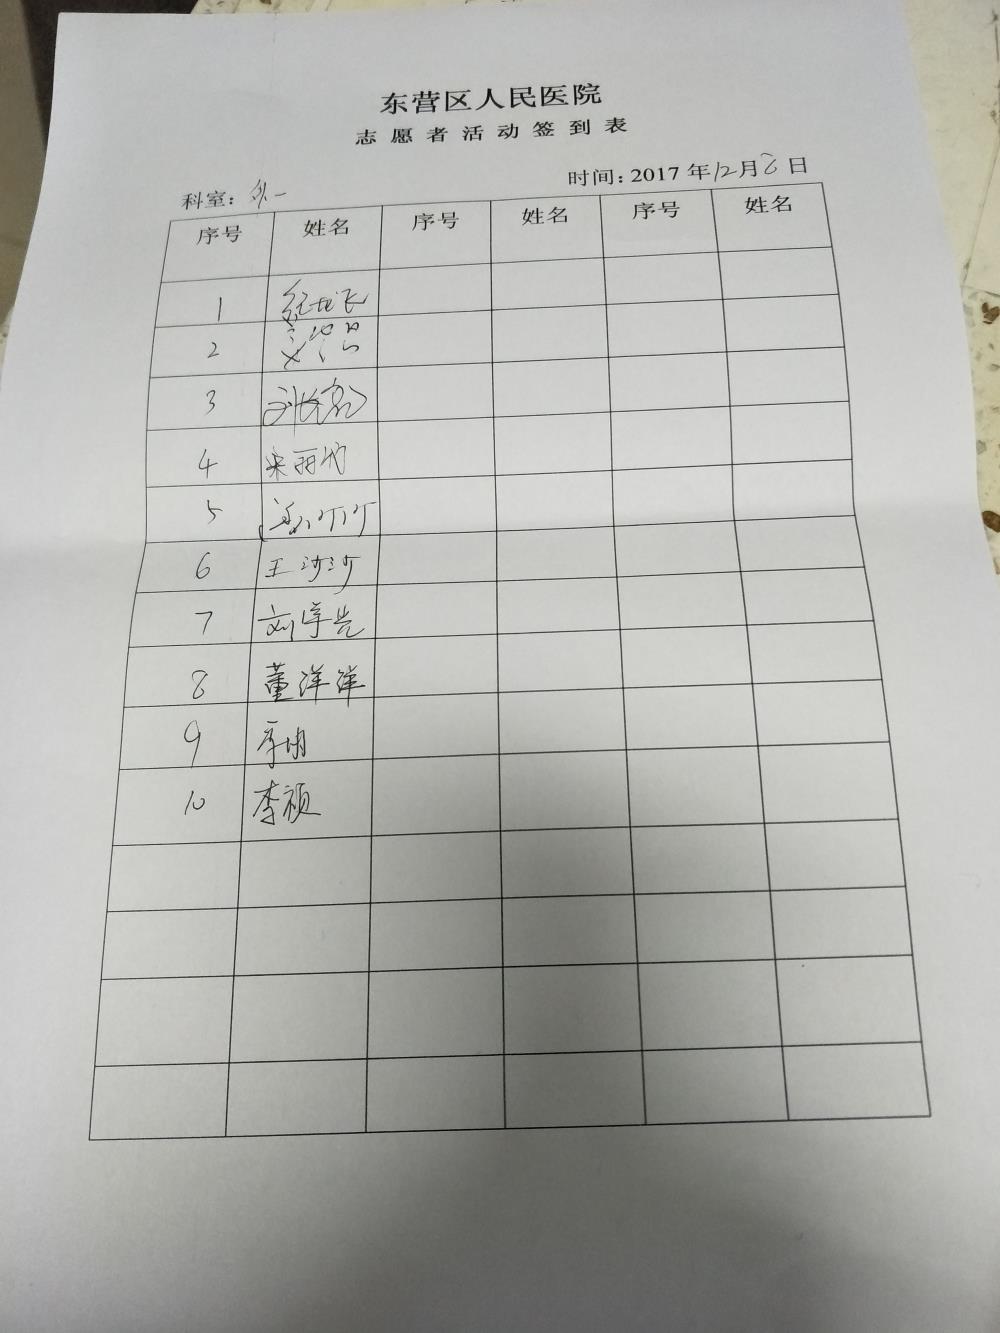 东营区人民医院
志愿者活动签到表
科室：外一 时间：2017年12月8日
序号 姓名 序号 姓名 序号 姓名
1 纪龙飞
2
3
4 宋丽
5
6 王沙沙
7 刘学兰
8 董洋洋
9
10 李颖